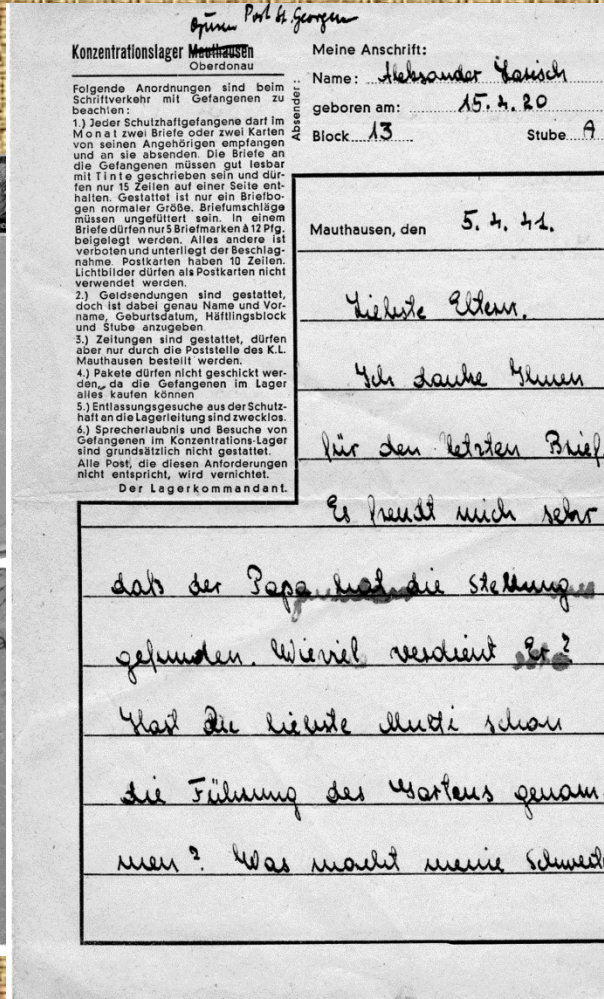 Gusen Post St. Georgen
Konzentrationslager Mauthausen
Oberdonau
Folgende Anordnungen sind beim
Schriftverkehr mit Gefangenen zu
beachten:
1.) Jeder Schutzhaftgefangene darf im
Monat zwei Briefe oder zwei Karten
von seinen Angehörigen empfangen
und an sie absenden. Die Briefe an
die Gefangenen müssen gut lesbar
mit Tinte geschrieben sein und dür-
fen nur 15 Zeilen auf einer Seite ent-
halten. Gestattet ist nur ein Briefbo-
gen normaler Größe. Briefumschläge
müssen ungefüttert sein. In einem
Briefe dürfen nur 5 Briefmarken à 12 Pfg.
beigelegt werden. Alles andere ist
verboten und unterliegt der Beschlag-
nahme. Postkarten haben 10 Zeilen.
Lichtbilder dürfen als Postkarten nicht
verwendet werden.
2.) Geldsendungen sind gestattet,
doch ist dabei genau Name und Vor-
name, Geburtsdatum, Häftlingsblock
und Stube anzugeben.
3.) Zeitungen sind gestattet, dürfen
aber nur durch die Poststelle des K.L.
Mauthausen bestellt werden.
4.) Pakete dürfen nicht geschickt wer-
den, da die Gefangenen im Lager
alles kaufen können
5.) Entlassungsgesuche aus der Schutz-
haft an die Lagerleitung sind zwecklos.
6.) Sprecherlaubnis und Besuche von
Gefangenen im Konzentrations-Lager
sind grundsätzlich nicht gestattet.
Alle Post, die diesen Anforderungen
nicht entspricht, wird vernichtet.
Der Lagerkommandant.
Absender:
Meine Anschrift:
Name: Aleksander Larisch
geboren am: 15.4.20
Block 13 Stube A
Mauthausen, den 5.4.41.
Liebste Eltern.
Ich danke Ihnen
für den letzten Brief
Es freudt mich sehr
daß der Papa hat die Stellung
gefunden. Wieviel verdient Er?
Hast Du liebste Mutti schon
die Führung des Gartens genom-
men? Was macht meine